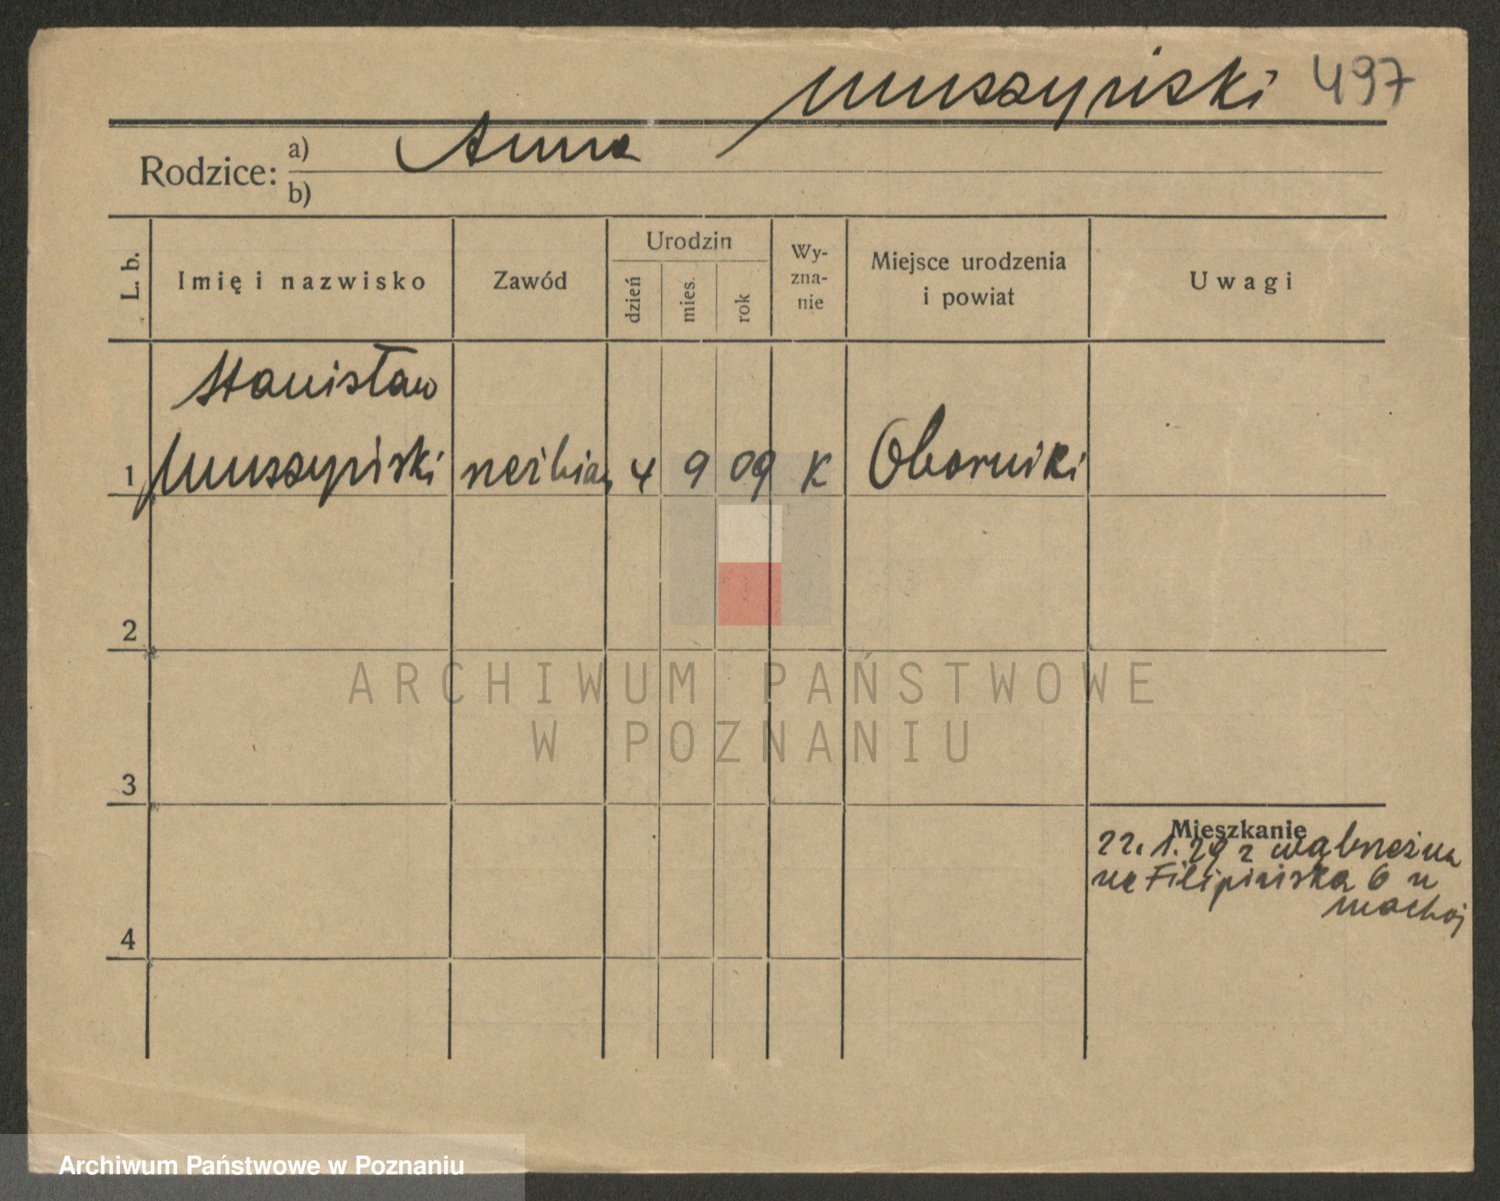 Muszyński 497
Rodzice: a) Anna
b)
L. b.
Imię i nazwisko
Zawód
Urodzin
dzień
mies.
rok
Wy-
zna-
nie
Miejsce urodzenia
i powiat
Uwagi
Stanisław
1 Muszyński rzeźbiarz 4 9 09 K Oborniki
2
3
4
Mieszkanie
22.1.29 z Wąbrzeźna
na Filipińska 6 u
Machaj
ARCHIWUM PAŃSTWOWE
W POZNANIU
Archiwum Państwowe w Poznaniu